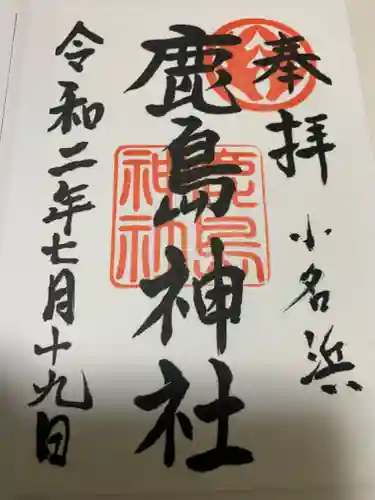 奉拝
小名浜
鹿島神社
鹿島
神社
令和二年七月十九日